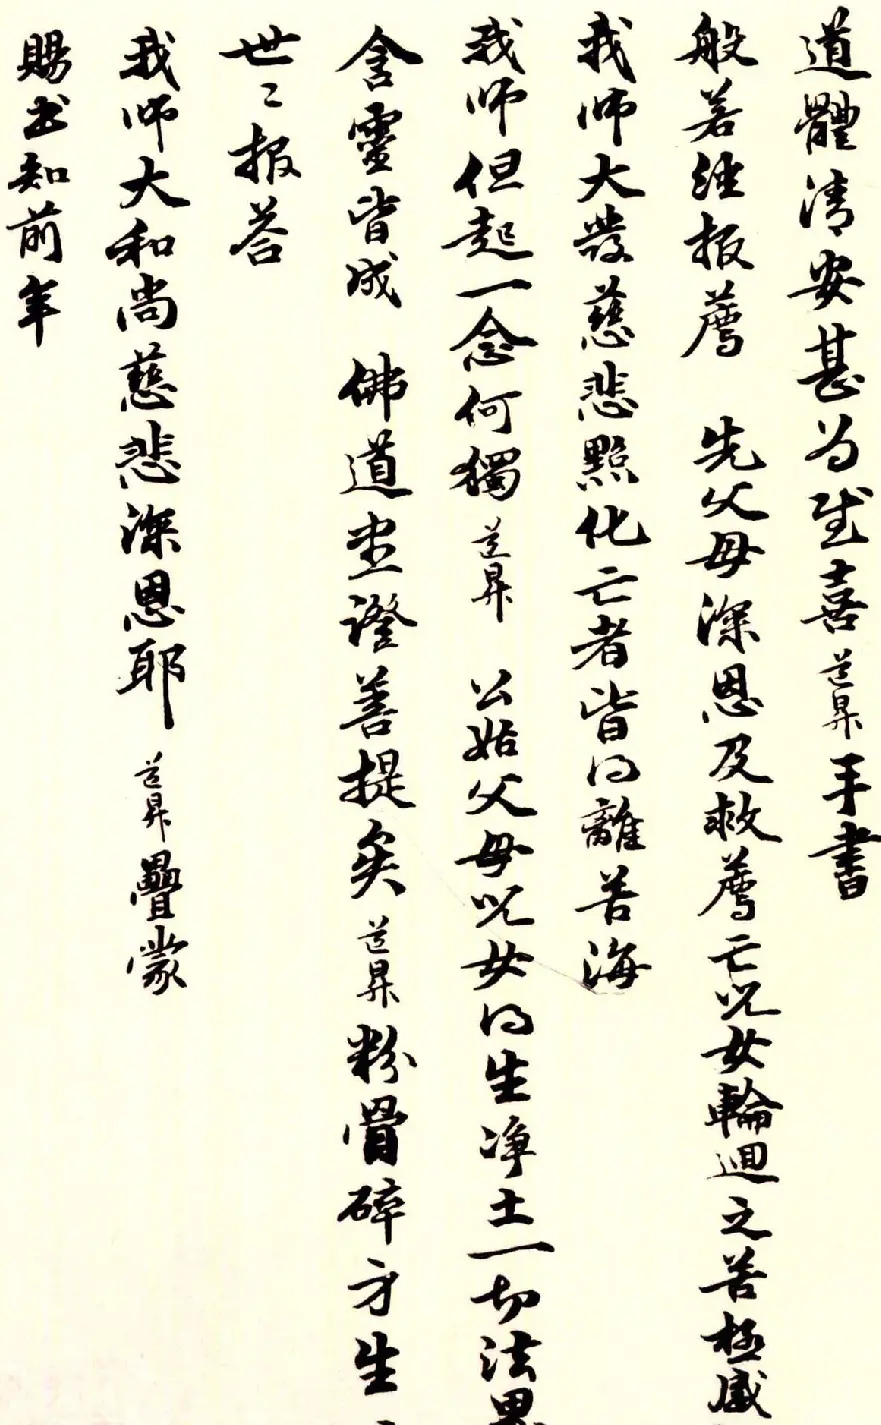 道體清安甚为感喜道昇手書
般若经报薦 先父母深恩及救薦亡児女輪迴之苦極感
我师大發慈悲點化亡者皆得離苦海
我师但起一念何獨道昇 公姑父母児女得生净土一切法界
含靈皆成 佛道堂證善提矣道昇粉骨碎身生
世〻报荅
我师大和尚慈悲深恩耶道昇曡蒙
賜书知前年